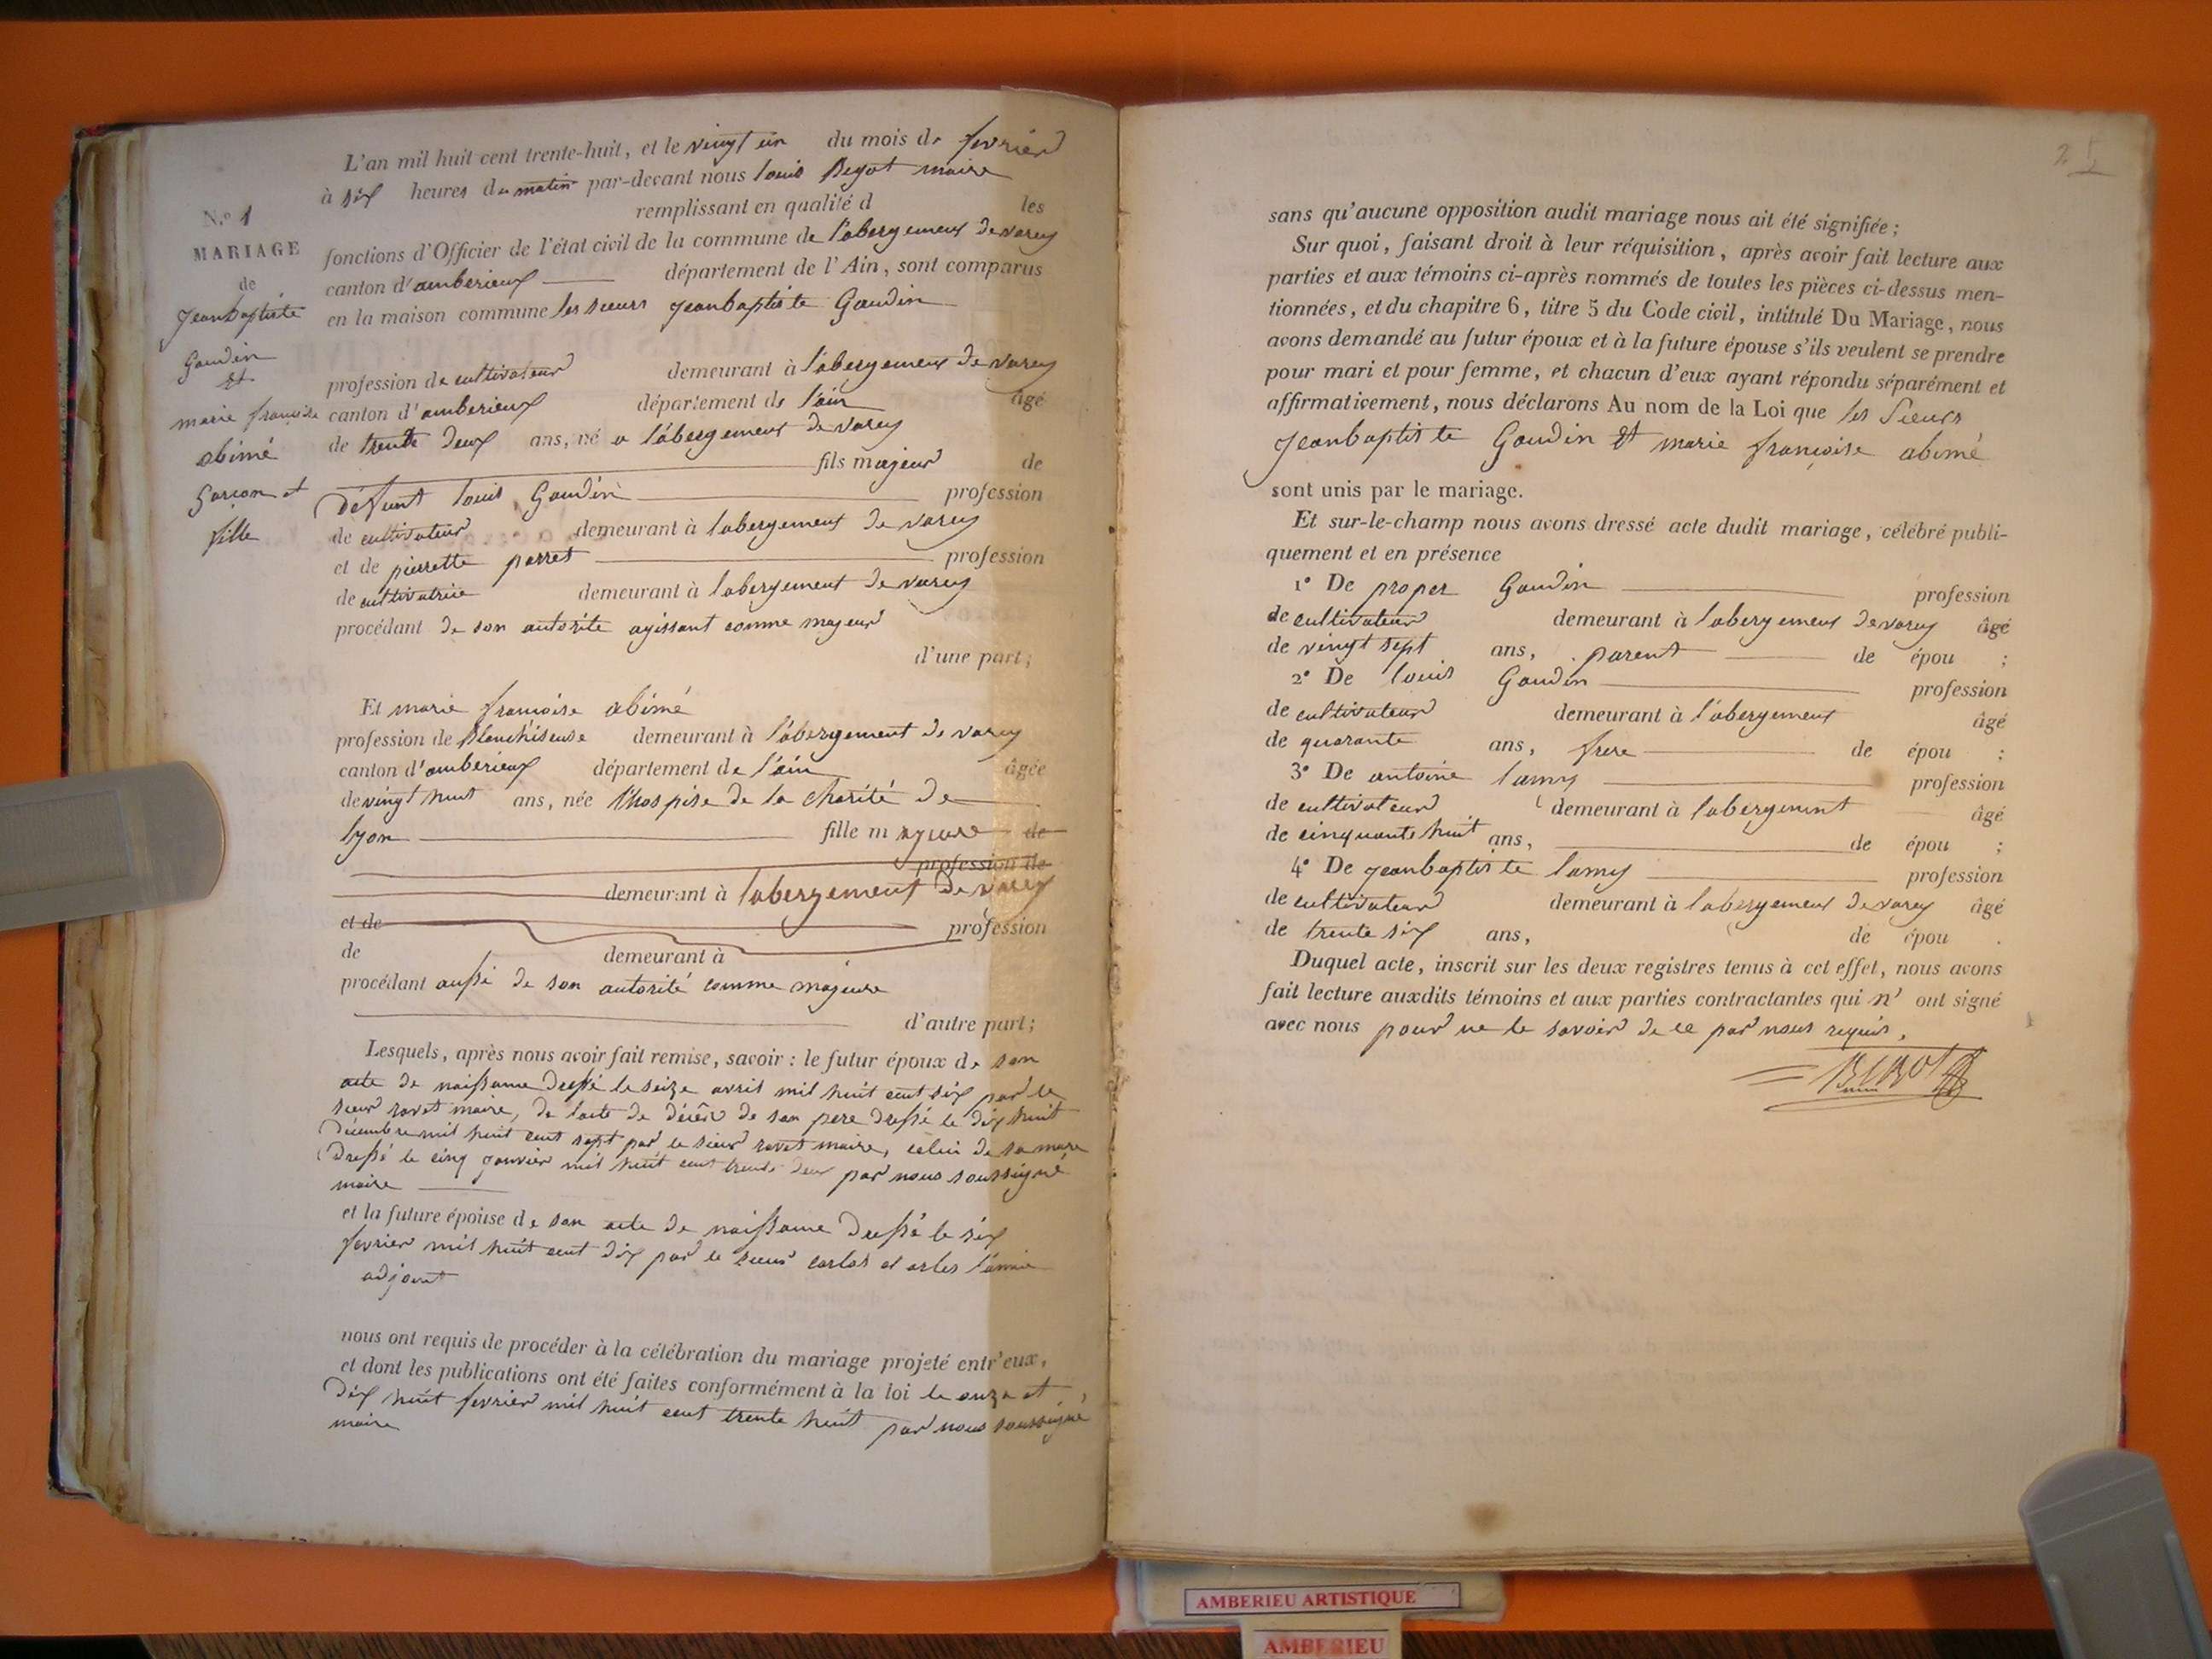 N.º 1
MARIAGE
de
jeanbaptiste
Gaudin
et
marie françoise
abimé
garçon et
fille
L'an mil huit cent trente-huit, et le vingt un du mois de fevrier
à six heures du matin par-devant nous louis Begot maire
remplissant en qualité d les
fonctions d'Officier de l'état civil de la commune de l'abergement de varey
canton d'amberieux département de l'Ain, sont comparus
en la maison commune les sieurs jeanbaptiste Gaudin
profession de cultivateur demeurant à l'abergement de varey
canton d'amberieux département de l'ain âgé
de trente deux ans, né a l'abergement de varey
fils majeur de
défunt louis Gaudin profession
de cultivateur demeurant à labergement de varey
et de pierrette perret profession
de cultivatrice demeurant à labergement de varey
procédant de son autorité agissant comme majeur
d'une part;
Et marie françoise abimé
profession de Blanchiseuse demeurant à l'abergement de varey
canton d'amberieux département de l'ain âgée
de vingt huit ans, née l'hospise de la charité de
lyon fille majeure de
profession de
demeurant à labergement de varey
et de profession
de demeurant à
procédant aussi de son autorité comme majeure
d'autre part;
Lesquels, après nous avoir fait remise, savoir : le futur époux de son
acte de naissance dressé le seize avril mil huit cent six par le
sieur ravet maire, de lacte de décès de son pere dressé le dix huit
décembre mil huit cent sept par le sieur ravet maire, celui de sa mere
dressé le cinq janvier mil huit cent trente deux par nous soussigné
maire
et la future épouse de son acte de naissance dressé le six
fevrier mil huit cent dix par le sieur
adjoint
nous ont requis de procéder à la célébration du mariage projeté entr'eux,
et dont les publications ont été faites conformément à la loi le onze et
dix huit fevrier mil huit cent trente huit par nous soussigné
maire
sans qu'aucune opposition audit mariage nous ait été signifiée;
Sur quoi, faisant droit à leur réquisition, après avoir fait lecture aux
parties et aux témoins ci-après nommés de toutes les pièces ci-dessus men-
tionnées, et du chapitre 6, titre 5 du Code civil, intitulé Du Mariage, nous
avons demandé au futur époux et à la future épouse s'ils veulent se prendre
pour mari et pour femme, et chacun d'eux ayant répondu séparément et
affirmativement, nous déclarons Au nom de la Loi que les Sieurs
jeanbaptiste Gaudin et marie françoise abimé
sont unis par le mariage.
Et sur-le-champ nous avons dressé acte dudit mariage, célébré publi-
quement et en présence
1º De proper Gaudin profession
de cultivateur demeurant à labergement de varey âgé
de vingt sept ans, parent de épou ;
2º De louis Gaudin profession
de cultivateur demeurant à l'abergement âgé
de quarante ans, frere de épou ;
3º De antoine lamy profession
de cultivateur demeurant à labergement âgé
de cinquante huit ans, de épou ;
4º De jeanbaptiste lamy profession
de cultivateur demeurant à labergement de varey âgé
de trente six ans, de épou .
Duquel acte, inscrit sur les deux registres tenus à cet effet, nous avons
fait lecture auxdits témoins et aux parties contractantes qui n' ont signé
avec nous pour ne le savoir de ce par nous requis.
AMBERIEU ARTISTIQUE
AMBERIEU